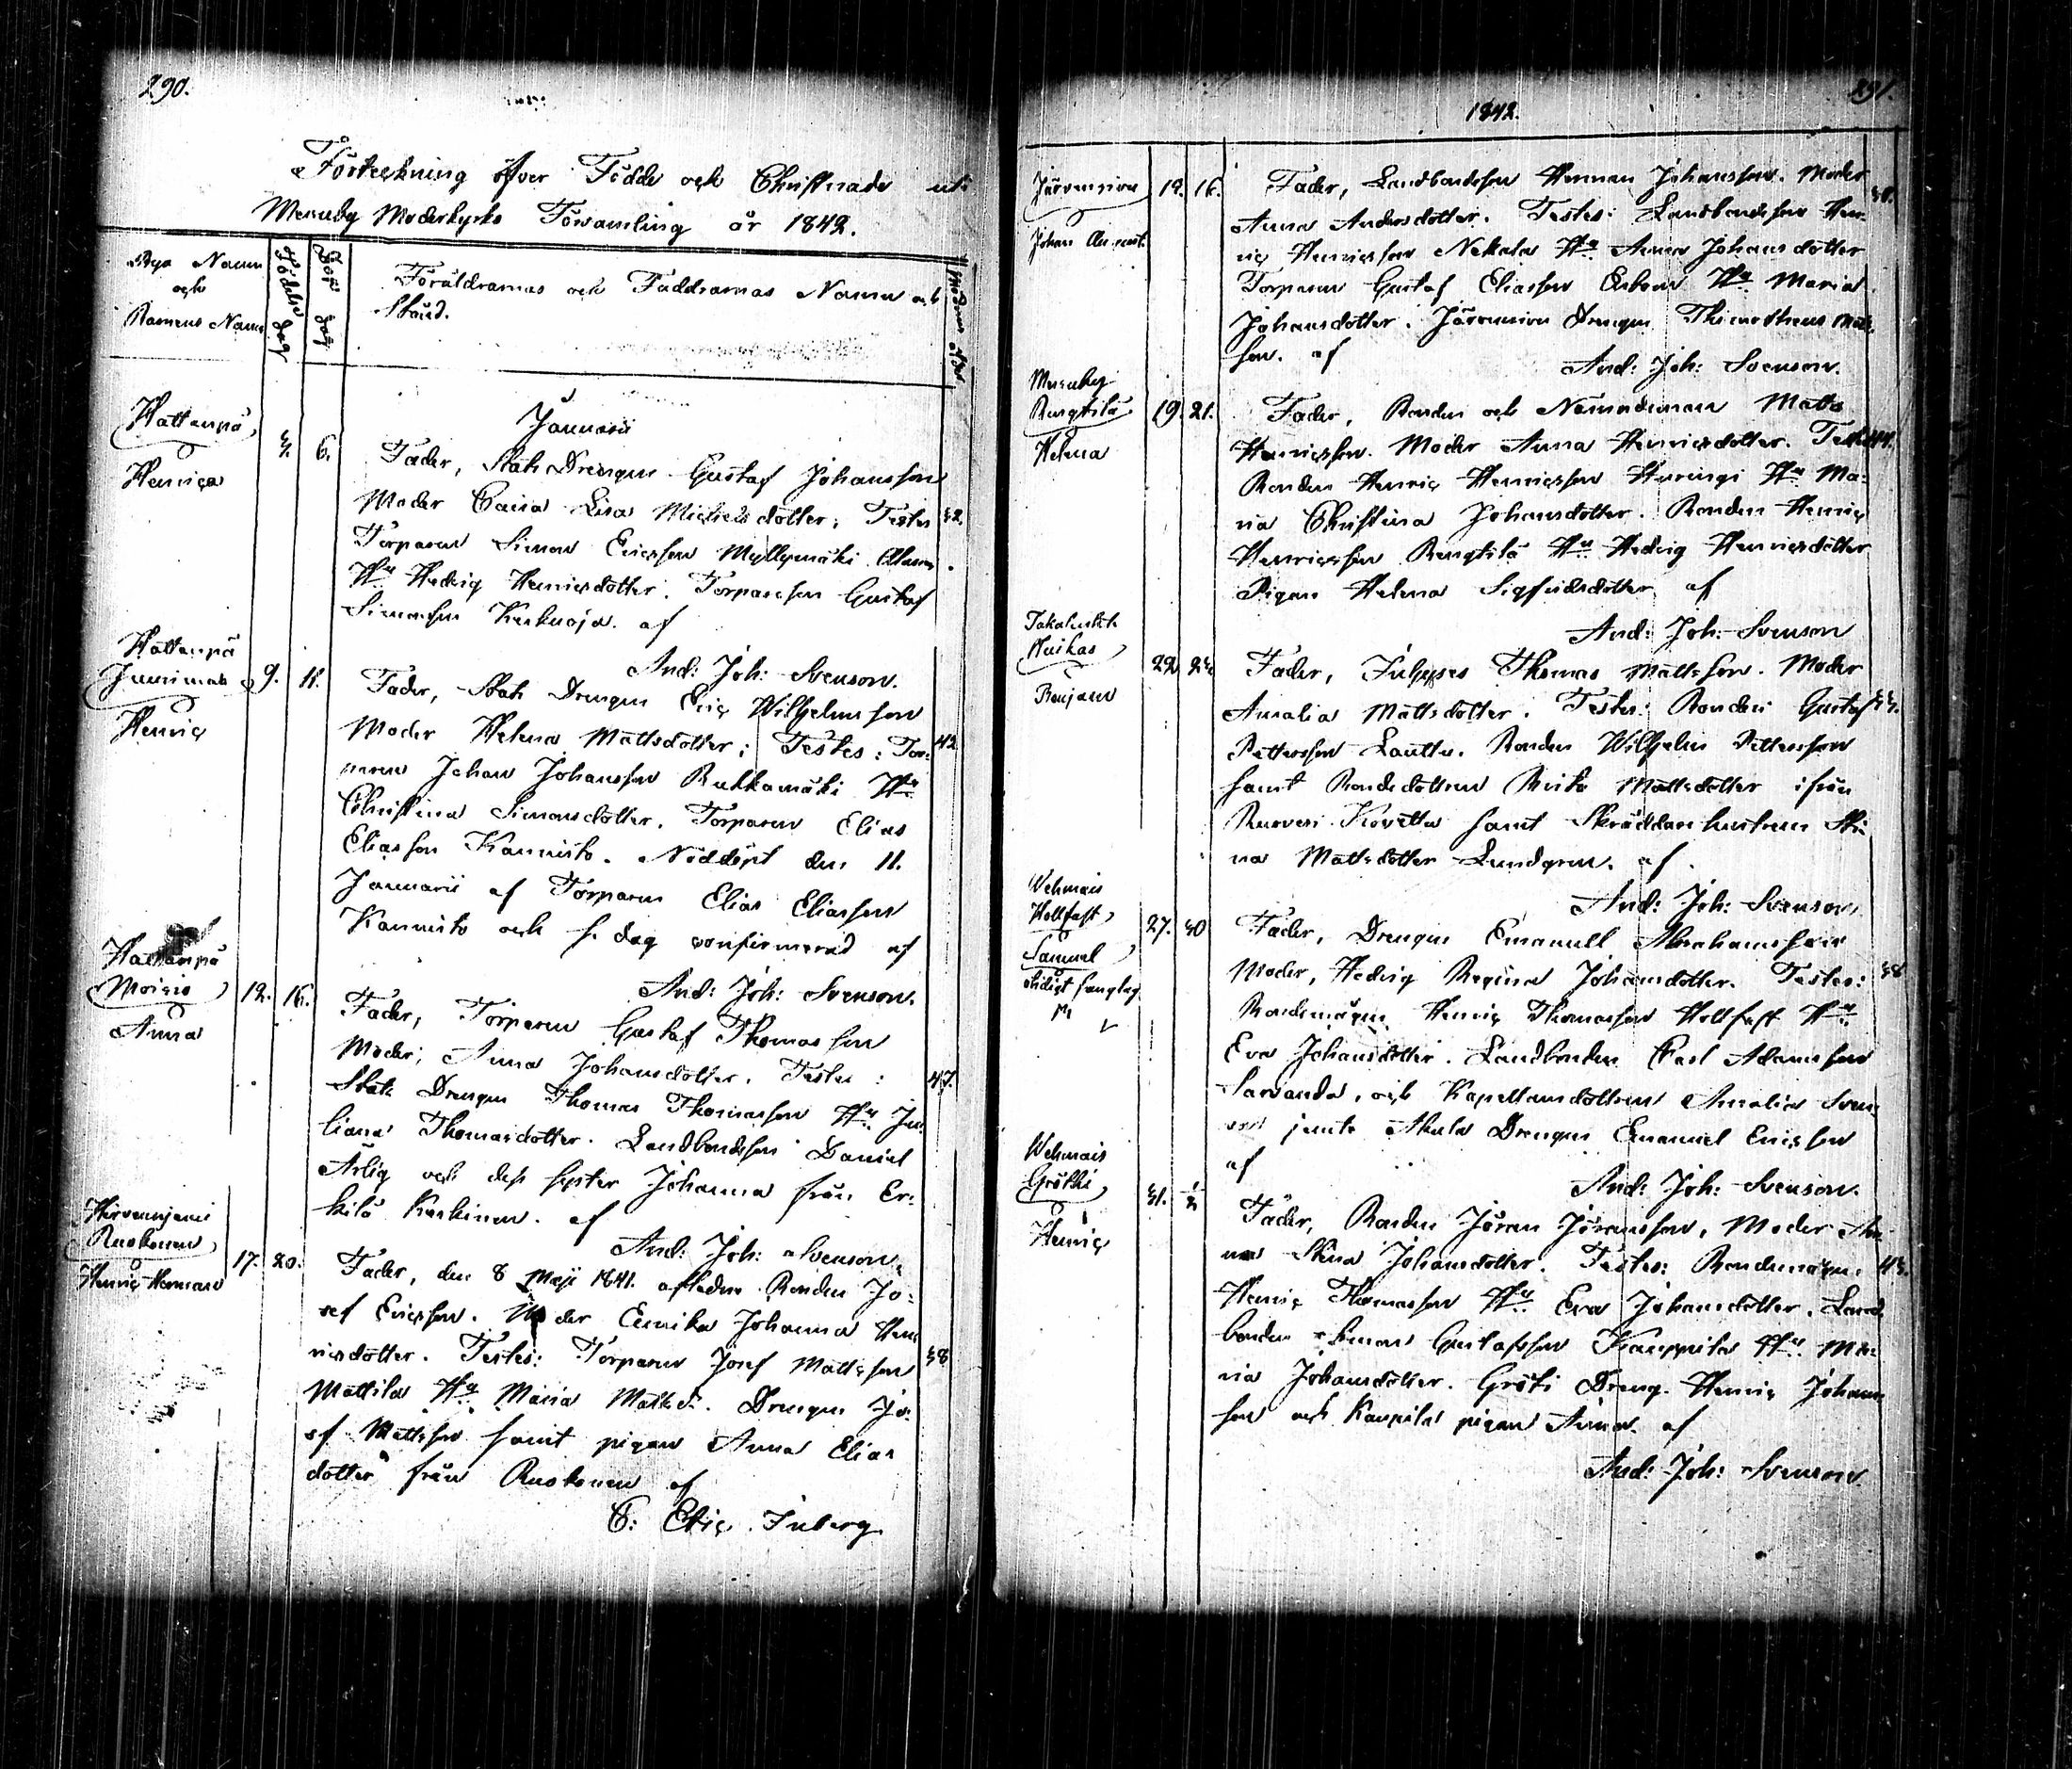 290.
Förteckning öfver Födde och Christnade uti
Mouhijärvi Moderkyrko Församling år 1842.
Bya Namn
och
Barnens Namn
Födelse dag
Döpt dag
Föräldrarnas och Faddrarnas Namn och
Stånd.
Modrens Ålder
Januarii
Hattanpä
Henrica
3. 6.
Fader, Stats Drengen Gustaf Johansson
Moder Caisa Lisa Michelsdotter; Testes 32
Torparen Simon Ericsson Myllymäki
Hu Hedvig Henricsdotter. Torparesson Gustaf
Simonsson Keskuoja. af
And: Joh: Svenson.
Hattanpä
Junnima
Henric
9. 11.
Fader, Stats Drengen Eric Wilhelmsson
Moder Helena Mattsdotter; Testes: Tor- 42
paren Johan Johansson Rukkamäki Hu
Christina Simonsdotter. Torparen Elias
Eliasson Kannisto. Nöddöpt den 11.
Januarii af Torparen Elias Eliasson
Kannisto och s. dag confirmerad af
And: Joh: Svenson.
Hattanpä
Moisio
Anna
12. 16.
Fader, Torparen Gustaf Thomasson
Moder; Anna Johansdotter. Testes: 47.
Stats Drengen Thomas Thomasson Hu Ju-
liana Thomasdotter. Landbondsson Daniel
Arlig och dess syster Johanna från Er-
kilä Keskinen. af
And: Joh: Svenson.
Ruokonen
Henric Herman
17. 20.
Fader, den 8 Maji 1841. afledne Bonden Jo-
sef Ericsson. Moder Eunika Johanna Hen-
ricsdotter. Testes: Torparen Josef Mattsson 38
Mattila Hu Maria Mattsd. Drengen Jo-
sef Mattsson samt pigan Anna Elias
dotter från Ruokonen af
C: Eric Inberg
291.
1842.
Järvensivu
Johan August.
12. 16.
Fader, Landbondsson Herman Johansson. Moder
Anna Andersdotter. Testes: Landbondsson Hen-
ric Henricsson Nekala Hu Anna Johansdotter
Torparen Gustaf Eliasson Hu Maria
Johansdotter. Järvensivu Drengen Thimotheus Matts-
son. af
And: Joh: Svenson.
Bengtilä
Helena
19. 21.
Fader, Bonden och Nämndeman Matts
Henricsson. Moder Anna Henricsdotter. Testes 44.
Bonden Henric Henricsson Hu Ma-
ria Christina Johansdotter. Bonden Henric
Henricsson Bengtilä Hu Hedvig Henricsdotter
Pigan Helena Sigfridsdotter af
And: Joh: Svenson
Takahuhti
Huikas
Benjam
22. 23.
Fader, Thomas Mattsson. Moder
Amalia Mattsdotter. Testes: Bonden Gustaf 33.
Pettersson Lauttu. Bonden Wilhelm Pettersson
samt Bondedottren Brita Mattsdotter ifrån
Kovetta samt Skräddarehustrun Sti-
na Mattsdotter Lundgren. af
And: Joh: Svenson.
Wehmais
Hollfast
Samuel
27. 30
Fader, Drengen Emanuell Abrahamsson
Moder, Hedvig Regina Johansdotter. Testes: 38
Bondemågen Henric Thomasson Hollfast Hu
Eva Johansdotter. Landbonden Carl Adamsson
Sarvanda, och Kapellansdottren Amalia Sven-
son jemte Akula Drengen Emanuel Ericsson
af
And: Joh: Svenson.
Wehmais
Gröthi
Henric
31. 1/2
Fader, Bonden Jöran Jöransson, Moder An-
na Stina Johansdotter. Testes: Bondemågen 43.
Henric Thomasson Hu Eva Johansdotter. Land-
bonden Simon Gustafsson Kauppila Hu Ma-
ria Johansdotter. Gröti Dreng Henric Johans-
son och Kaupila pigan Anna. af
And: Joh: Svenson.